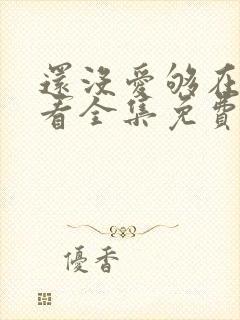 還沒愛够在
看全集免費
優香